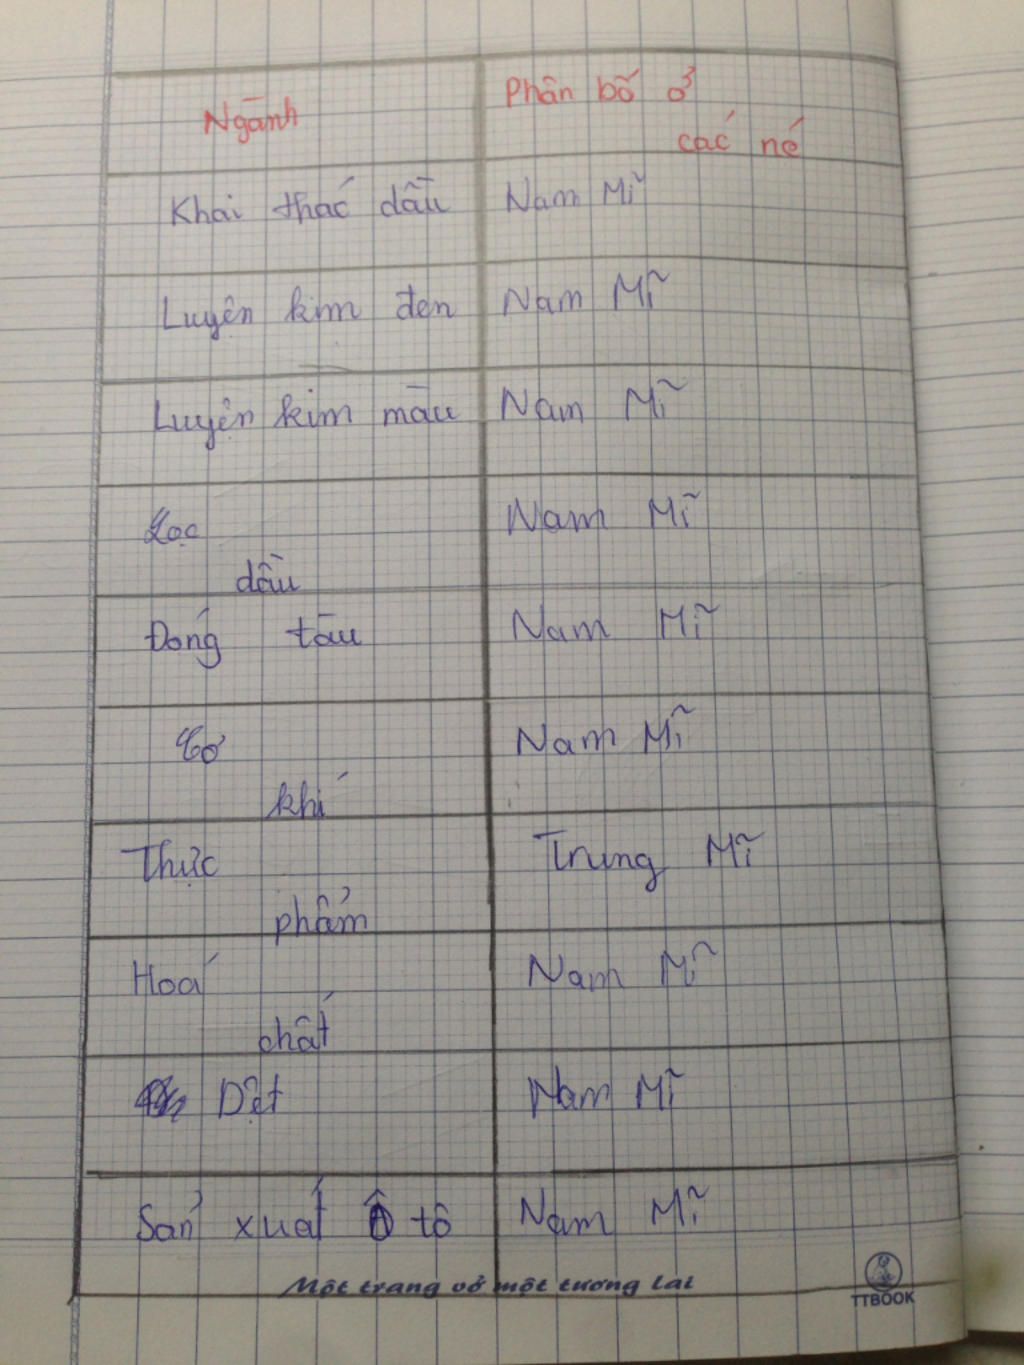 Ngành
Phân bố ở
các né
Khai thác dầu Nam Mĩ
Luyện kim đen Nam Mĩ
Luyện kim màu Nam Mĩ
Lọc Nam Mĩ
dầu
Đóng tàu Nam Mĩ
Cơ Nam Mĩ
khí
Thực Trung Mĩ
phẩm
Hoá Nam Mĩ
chất
Dệt Nam Mĩ
Sản xuất Ô tô Nam Mĩ
Một trang vở một tương lai
TTBOOK